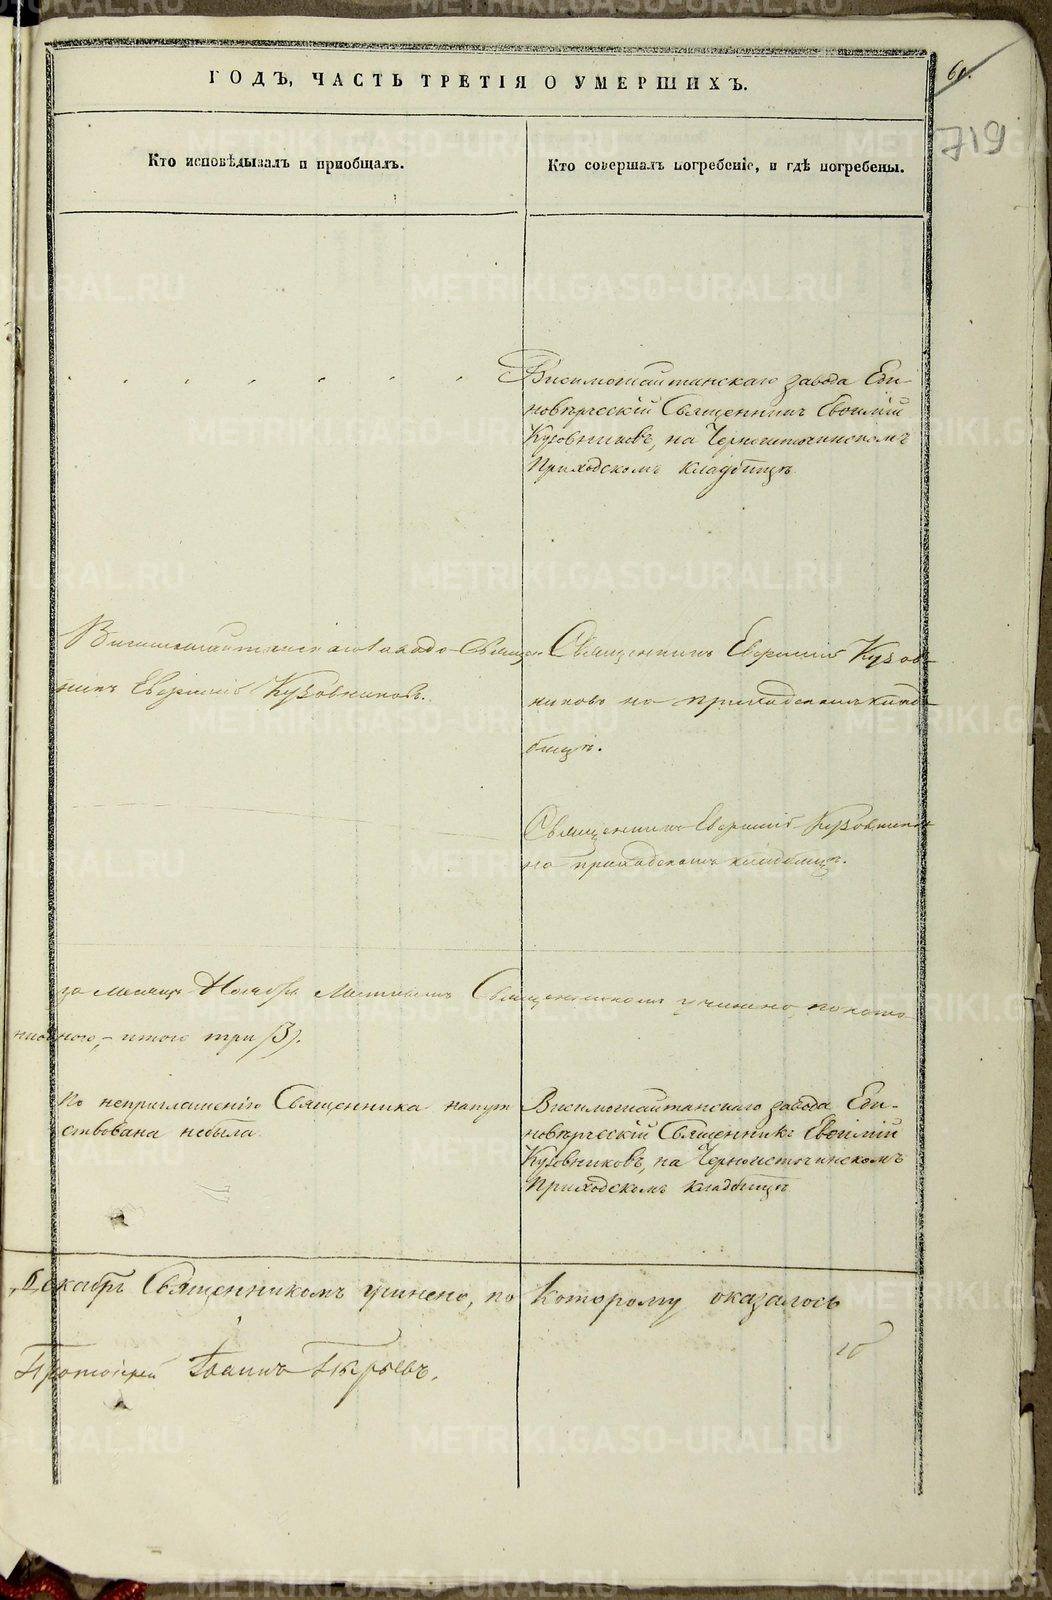 ГОДЪ, ЧАСТЬ ТРЕТІЯ О УМЕРШИХЪ.
60.
719
Кто исповѣдывалъ и приобщалъ.
Кто совершалъ погребеніе, и гдѣ погребены.
Висимошайтанскаго завода Еди-
новѣрческій Священникъ Евѳимій
Кузовниковъ, на Черноисточинскомъ
Приходскомъ кладбищѣ
Висимошайтанскаго завода Священ
никъ Евѳимій Кузовниковъ.
Священникъ Евѳимій Кузов-
никовъ на приходскомъ клад-
бищѣ.
Священникъ Евѳимій Кузовников
на приходскомъ кладбищѣ.
за месяцъ Ноябрь Священникомъ учинено, по кото
итого три (3).
По неприглашенію Священника напут
ствована небыла.
Висимошайтанскаго завода Еди-
новѣрческій Священникъ Евѳимій
Кузовниковъ, на Черноисточинскомъ
Приходскомъ кладбищѣ
Декабрь Священникомъ учинено, по которому оказалось
Протоіерей Іоаннъ Пырьевъ.
METRIKI.GASO-URAL.RU